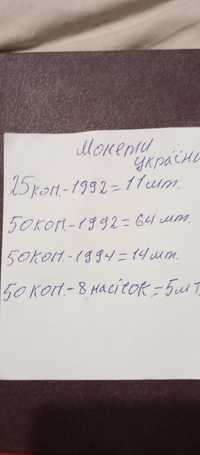 Монети
україни
25коп.-1992=11шт.
50коп.-1992=64шт.
50коп.-1994=14шт.
50коп.-8насічок=5шт